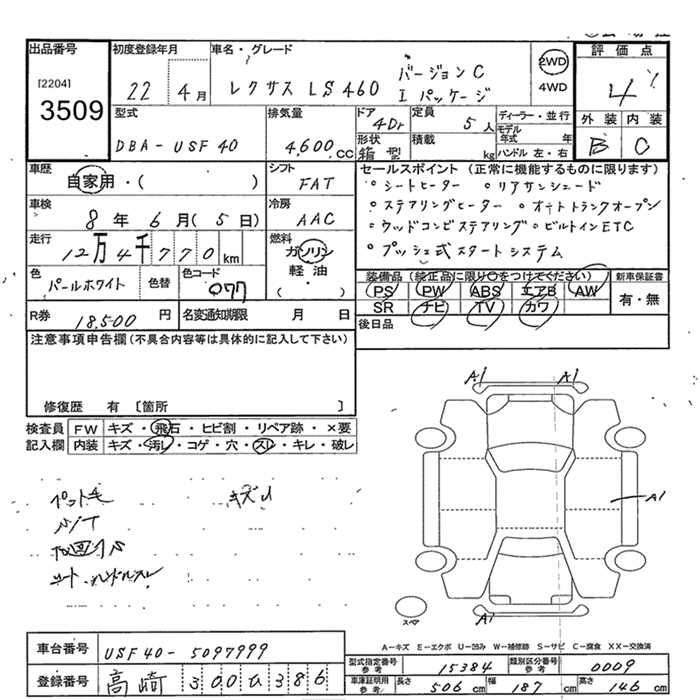 出品番号
[2204]
3509
初度登録年月
22 4月
車名・グレード
レクサス LS460
バージョンC
I パッケージ
2WD
4WD
評価点
4
外装 内装
B C
型式
DBA-USF40
排気量
4,600 cc
ドア
4Dr
形状
箱型
定員
5人
積載
kg
ディーラー・並行
モデル年式 年
ハンドル 左・右
車歴
自家用・( )
シフト
FAT
車検
8年 6月 (5日)
冷房
AAC
走行
12万4千770km
燃料
ガソリン
軽・油
( )
色
パールホワイト
色替
色コード
077
R券
18,500 円
名変通知期限 月 日
セールスポイント (正常に機能するものに限ります)
・シートヒーター ・リアサンシェード
・ステアリングヒーター ・オートトランクオープン
・ウッドコンビステアリング ・ビルトインETC
・プッシュ式スタートシステム
装備品(純正品に限り○をつけてください)
PS PW ABS エアB AW
SR ナビ TV カワ
新車保証書
有・無
後日品
注意事項申告欄(不具合内容等は具体的に記入して下さい)
修復歴 有 〔箇所 〕
検査員記入欄
FW キズ・飛石・ヒビ割・リペア跡・×要
内装 キズ・汚レ・コゲ・穴・スレ・キレ・破レ
ペット毛
キズU
シート・ハンドルスレ
A1 A1
A1
A1
スペア
A-キズ E-エクボ U-凹み W-補修跡 S-サビ C-腐食 XX-交換済
車台番号
USF40-5097999
登録番号
高崎 300ひ386
型式指定番号 参考
15384
類別区分番号 参考
0009
車庫証明用 参考
長さ 506 cm 幅 187 cm 高さ 146 cm